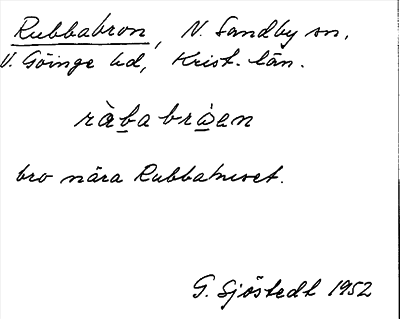 Rubbabron, N. Sandby sn,
V. Göinge hd, Krist. län.
ràbabrẁen
bro nära Rubbahuset.
G. Sjöstedt 1952